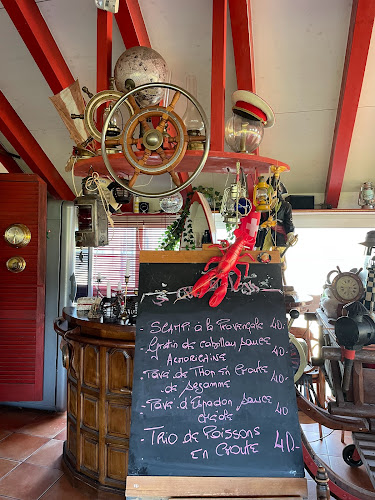 - Scampi à la Provençale 40.-
- Gratin de cabillau sauce
Armoricaine 40
- Pavé de Thon en Croute
de Sézamme 40
- Pavé d'Espadon sauce
40
Trio de Poissons
en Croute 40.